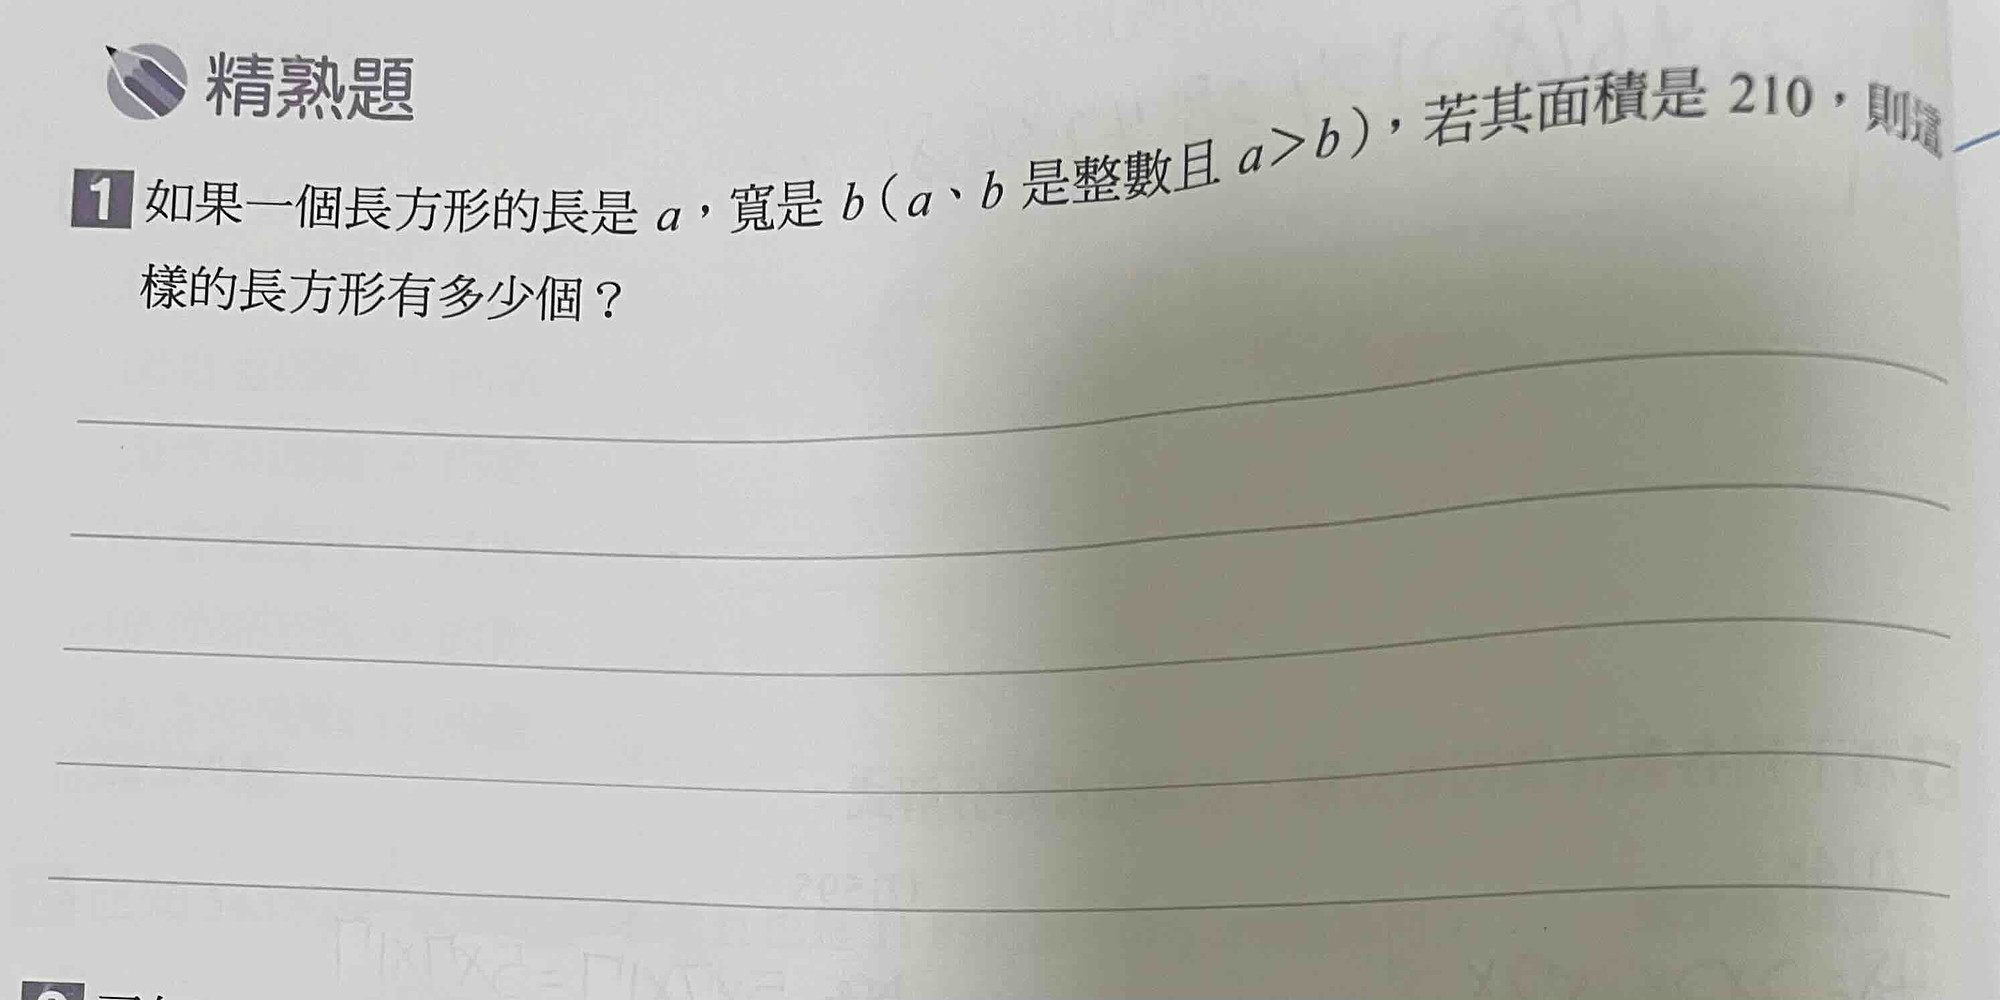 精熟題
1 如果一個長方形的長是 a，寬是 b（a、b 是整數且 a>b），若其面積是 210，則這
樣的長方形有多少個？